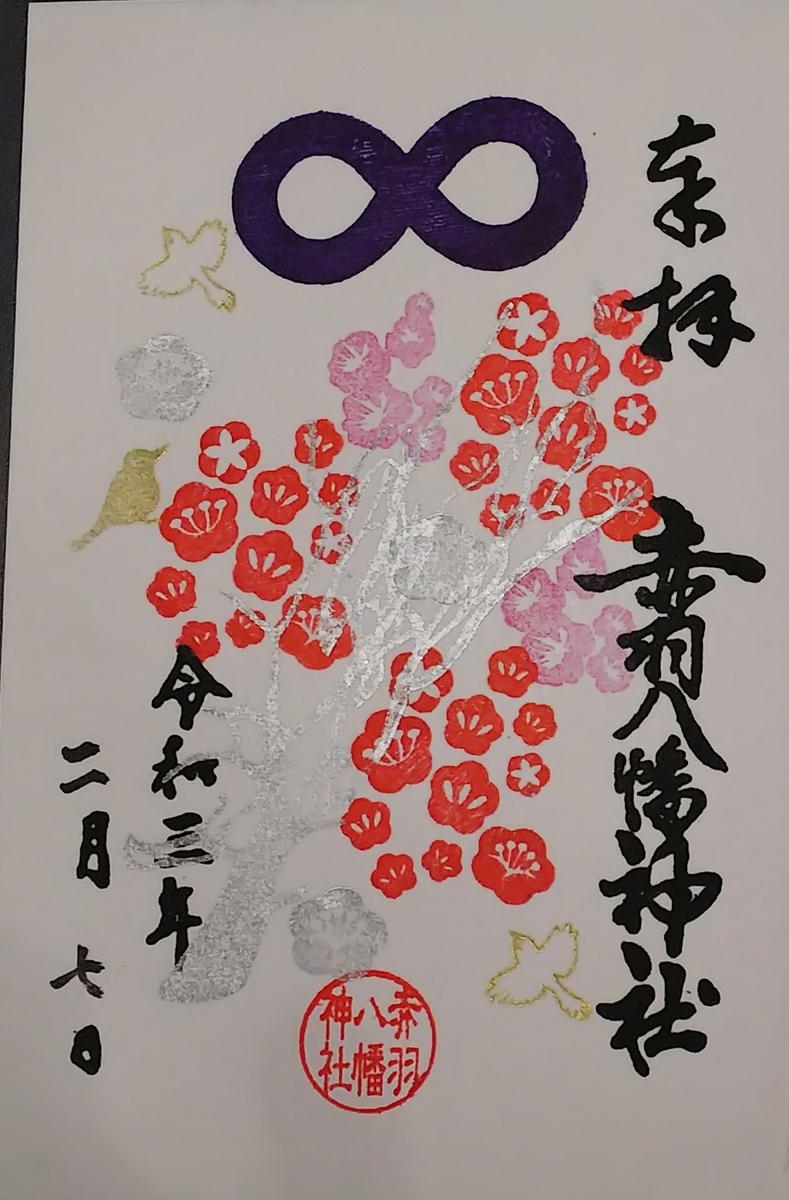 奉拝
赤羽八幡神社
令和三年
二月七日
赤羽
八幡
神社